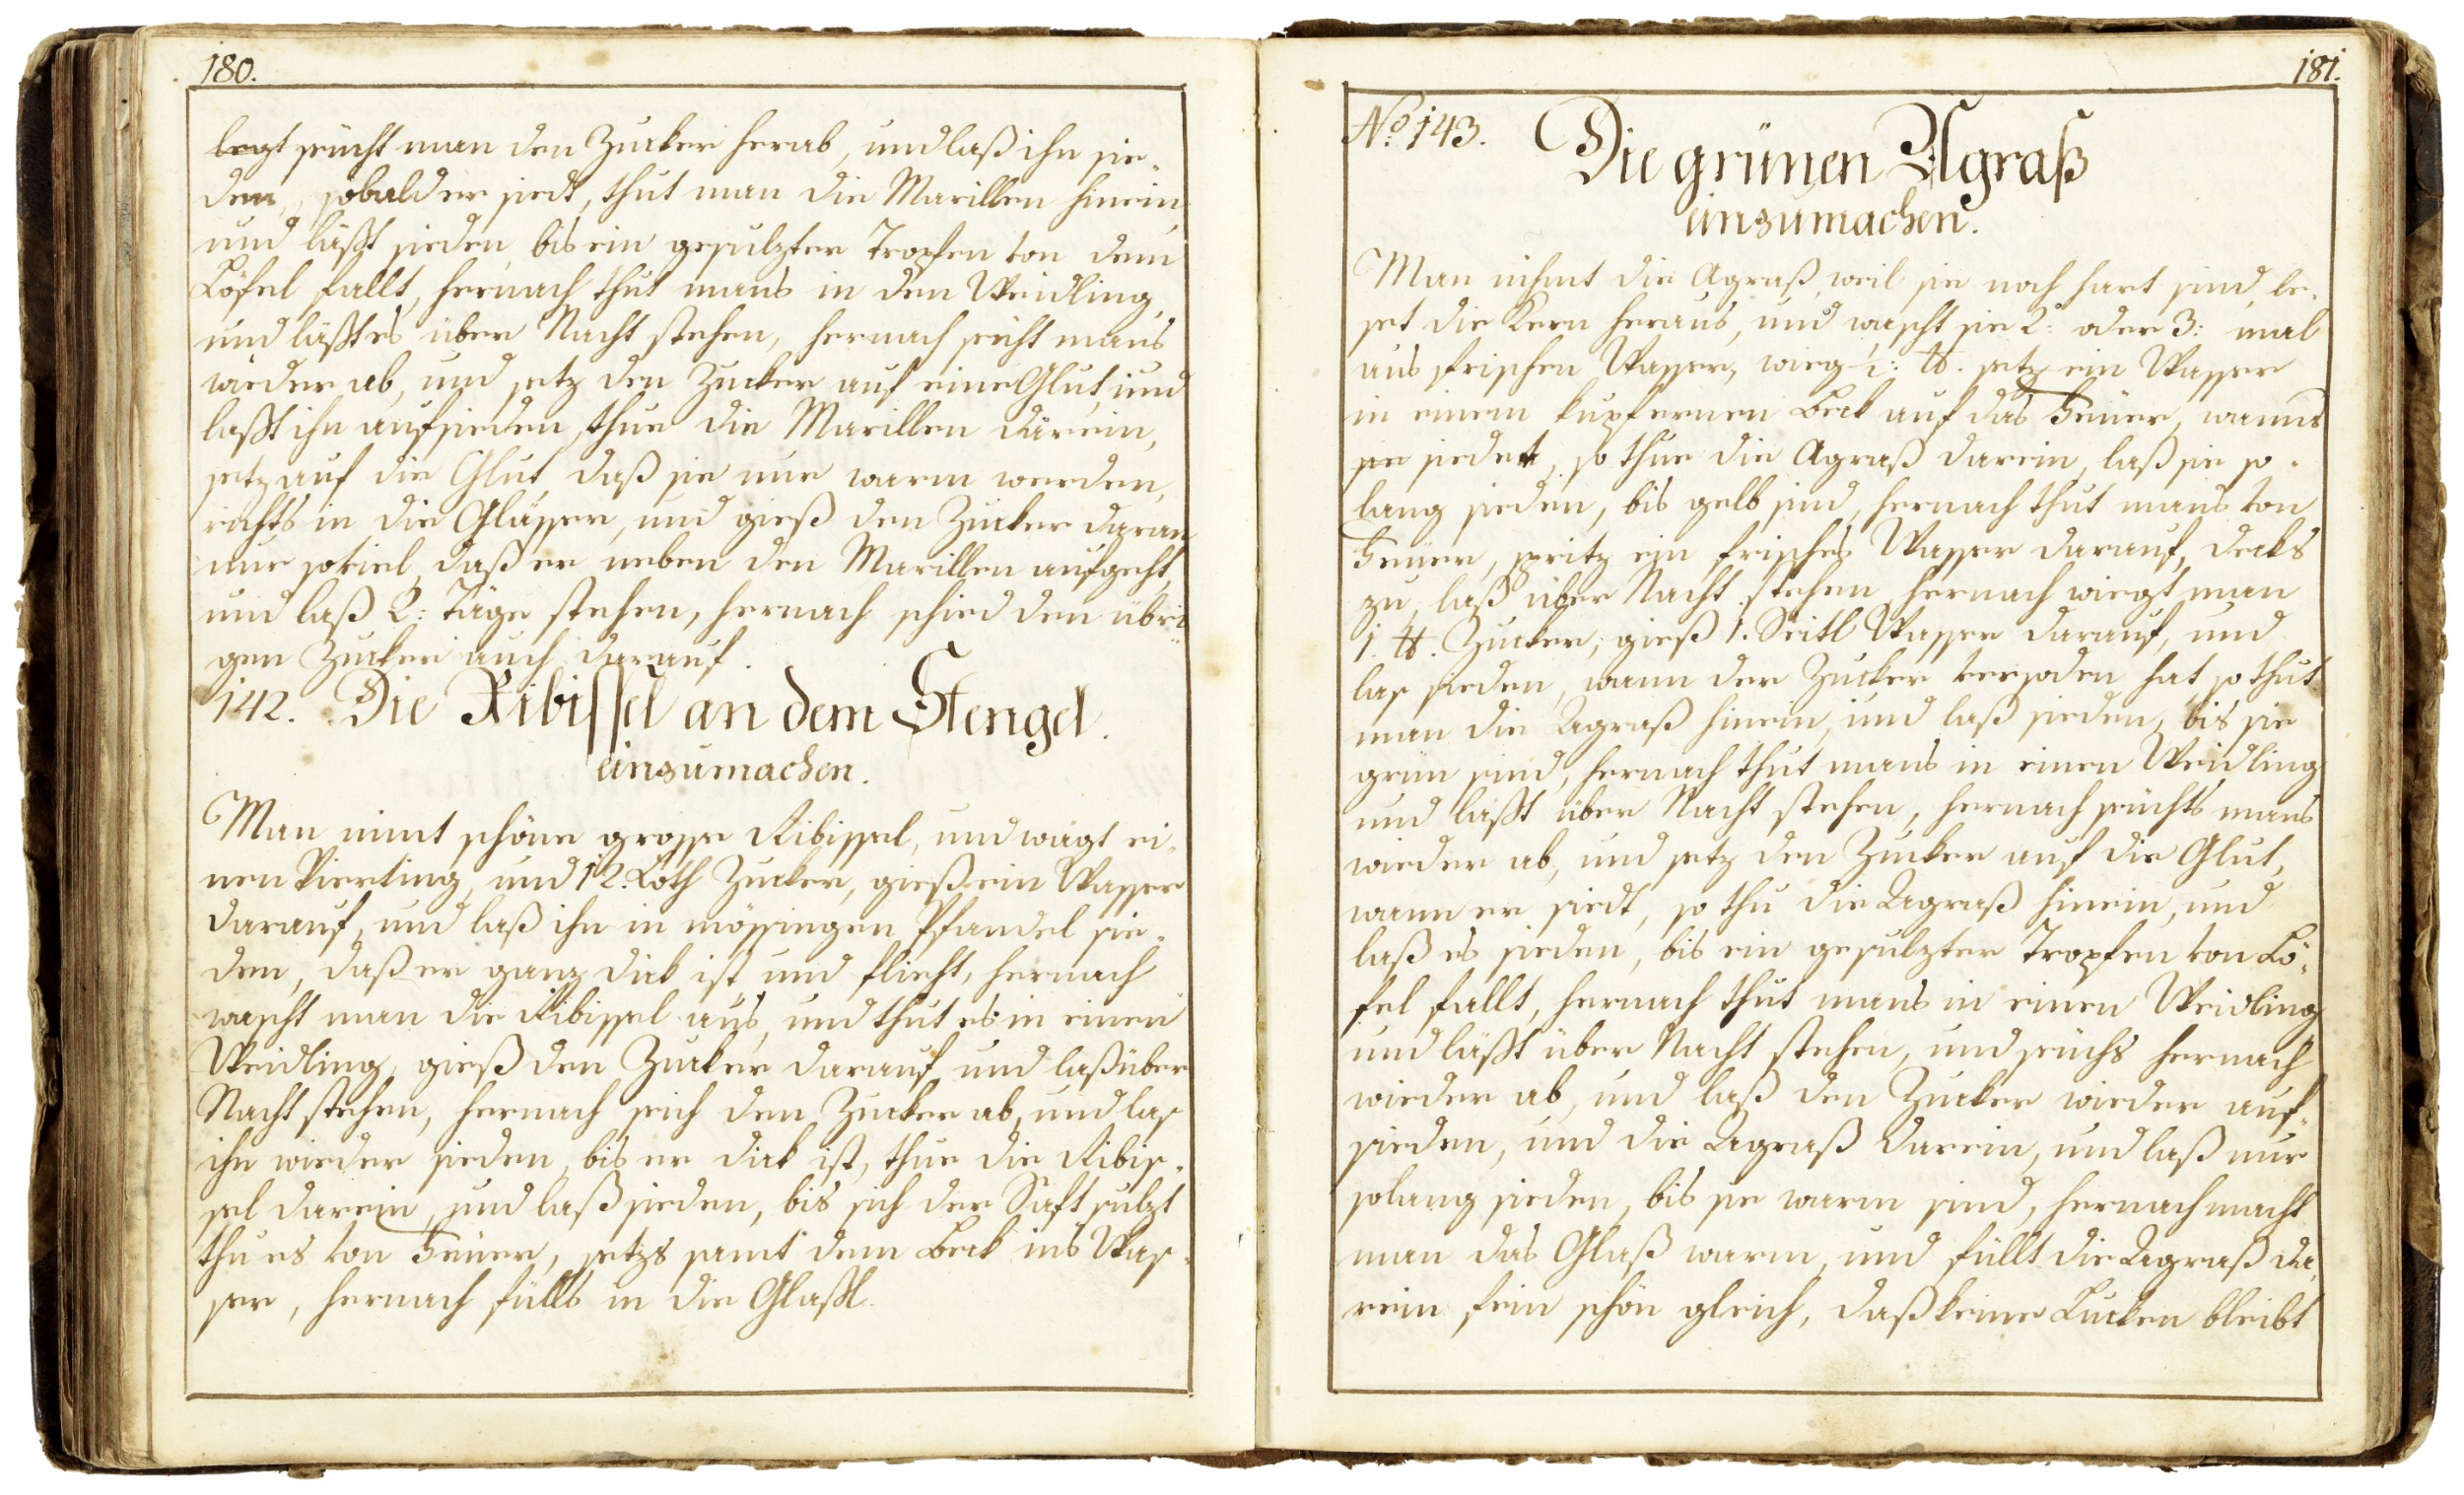 180.
legt seücht man den Zucker herab, und laß ihn sie-
den, sobald er siedt, thut man die Marillen hinein,
und läßt sieden, bis ein gesulzter Tropfen von dem
Löfel fallt, hernach thut mans in den Weidling,
und läßt es über Nacht stehen, hernach seicht mans
wieder ab, und setz den Zucker auf eine Glut, und
laßt ihn aufsieden, thue die Marillen darein,
setz auf die Glut, daß sie nur warm werden,
richts in die Glässer, und gieß den Zucker daran
nur soviel, daß er neben den Marillen aufgeht,
und laß 2: Täge stehen, hernach schied den übri-
gen Zucker auch darauf.
142. Die Ribissel an dem Stengel.
einzumachen.
Man nimt schöne grosse Ribissel, und wägt ei-
nen Vierting, und 12. Loth Zucker, gieß ein Wasser
darauf, und laß ihn in mössingen Pfandel sie-
den, daß er ganz dick ist und flieht, hernach
wascht man die Ribissel aus, und thut es in einen
Weidling, gieß den Zucker darauf, und laß über
Nacht stehen, hernach seich den Zucker ab, und las
ihn wieder sieden, bis er dick ist, thue die Ribis-
sel darein, und laß sieden, bis sich der Saft sulzt
thu es von Feüer, setzs samt dem Beck ins Was-
ser, hernach fülls in die Glaßl.
181.
No: 143.
Die grünen Agraß
einzumachen.
Man nihmt die Agraß, weil sie noch hart sind, le-
set die Kern heraus, und wascht sie 2: oder 3: mal
aus frischen Wasser, wieg ℔. setz ein Wasser
in einem kupfernen Beck auf das Feüer, wanns
siedet, so thue die Agraß darein, laß sie so-
lang sieden, bis gelb sind, hernach thut mans von
Feüer, spritz ein frisches Wasser darauf, decks
zu, laß über Nacht stehen, hernach wiegt man
1. ℔. Zucker, gieß 1. Seitl Wasser darauf, und
las sieden, wann der Zucker versoden hat, so thut
man die Agraß hinein, und laß sieden, bis sie
grün sind, hernach thut mans in einen Weidling
und laßt über Nacht stehen, hernach seüchts mans
wieder ab, und setz den Zucker auf die Glut,
wann er siedt, so thu die Agraß hinein, und
laß es sieden, bis ein gesulzter Tropfen von Lö-
fel fallt, hernach thut mans in einen Weidling
und läßt über Nacht stehen, und seüchs hernach
wieder ab, und laß den Zucker wieder auf-
sieden, und die Agraß darein, und laß nur
solang sieden, bis sie warm sind, hernach macht
man das Glaß warm, und füllt die Agraß da-
rein fein schön gleich, daß keine Lucken bleibt